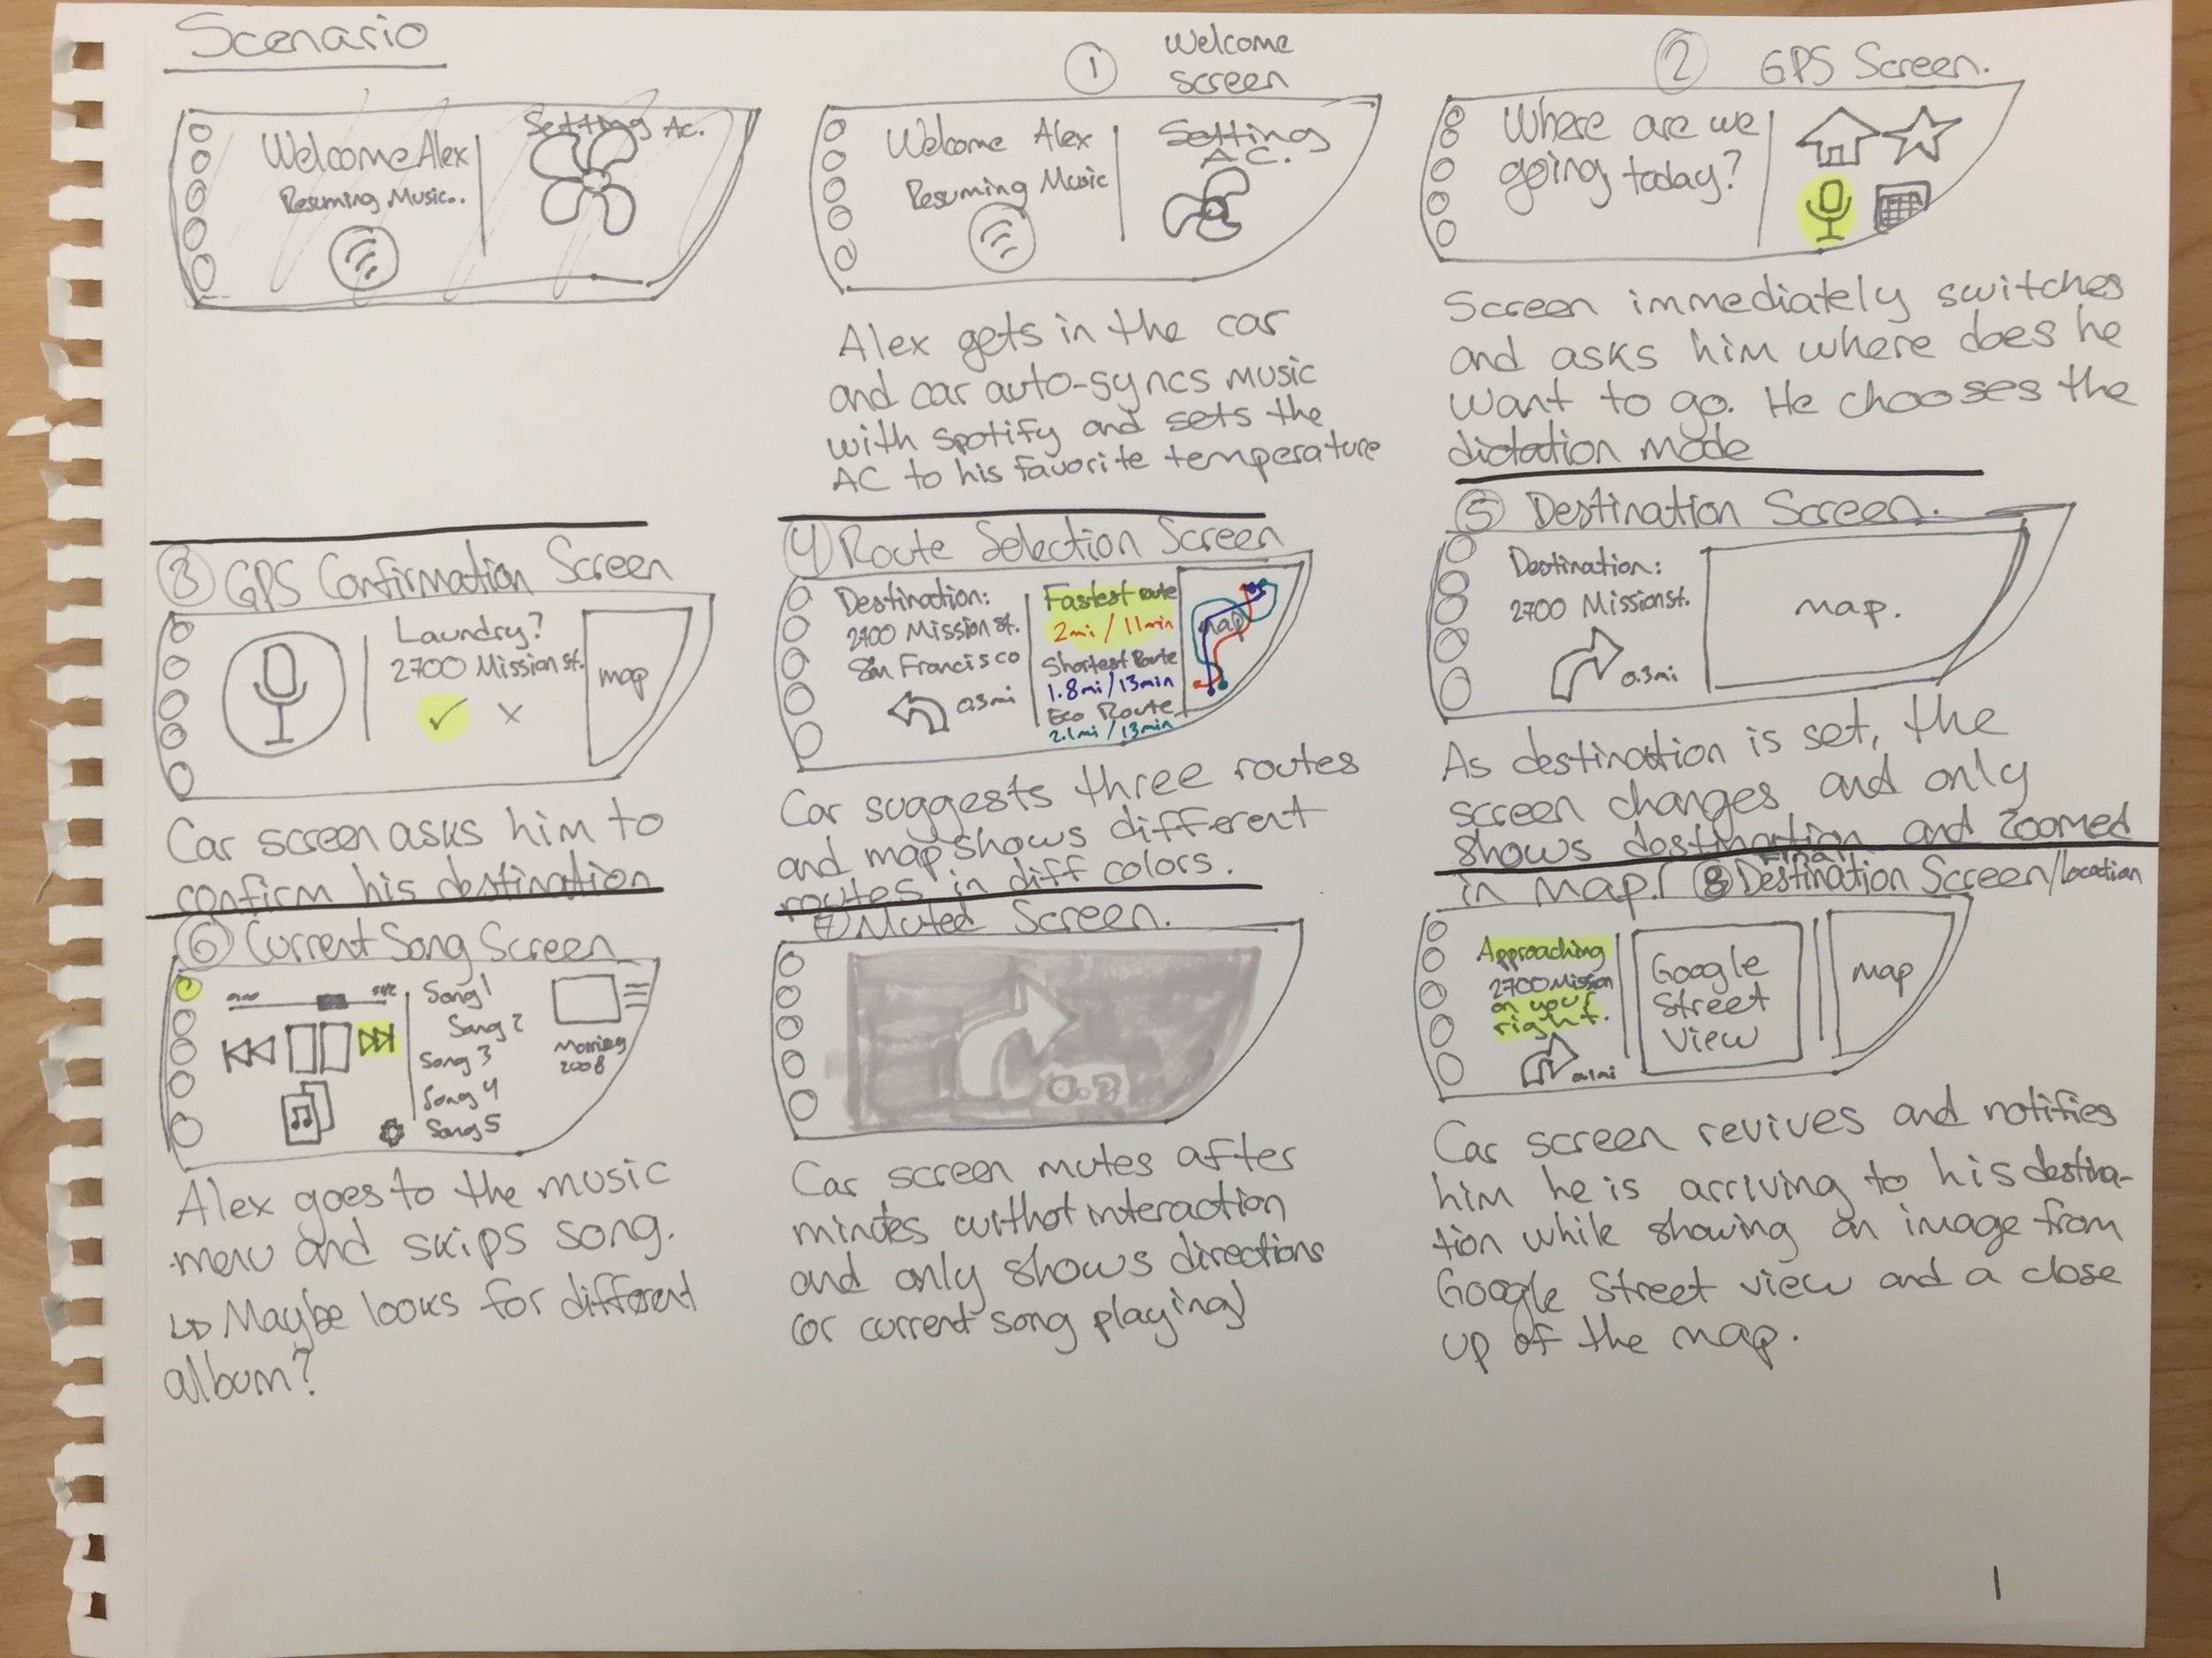 Scenario
Welcome Alex
Resuming Music..
Setting Ac.
1 Welcome
screen
Welcome Alex
Resuming Music
Setting
A C.
Alex gets in the car
and car auto-syncs music
with spotify and sets the
AC to his favorite temperature
2 GPS Screen.
Where are we
going today?
Screen immediately switches
and asks him where does he
want to go. He chooses the
dictation mode
3 GPS Confirmation Screen
Laundry?
2700 Mission st.
✓ x
map
Car screen asks him to
confirm his destination
4 Route Selection Screen
Destination:
2700 Mission st.
San Francisco
0.3mi
Fastest route
2mi / 11min
Shortest Route
1.8mi/13min
Eco Route
2.1mi/13min
map
Car suggests three routes
and map shows different
routes in diff colors.
5 Destination Screen.
Destination:
2700 Mission st.
0.3mi
map.
As destination is set, the
screen changes and only
shows destination and zoomed
in map!
6 Current Song Screen
Song 1
Song 2
Song 3
Song 4
Song 5
2008
Alex goes to the music
menu and skips song.
↳ Maybe looks for different
album?
7 Muted Screen.
0.3
Car screen mutes after
minutes withot interaction
and only shows directions
(or current song playing)
8 Final Destination Screen/location
Approaching
2700 Mission
on your
right.
0.1mi
Google
Street
View
map
Car screen revives and notifies
him he is arriving to his destina-
tion while showing an image from
Google Street view and a close
up of the map.
1